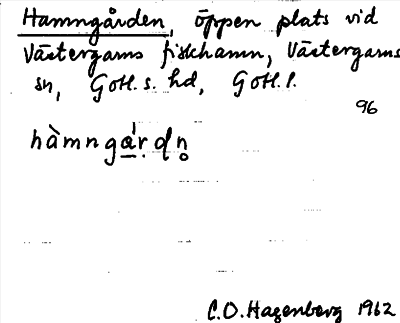 Hamngården, öppen plats vid
Västergarns fiskhamn, Västergarns
sn, Gotl. s. hd, Gotl. l.
96
hàmngạ̲́rdn̥
C.O. Hagenberg 1962